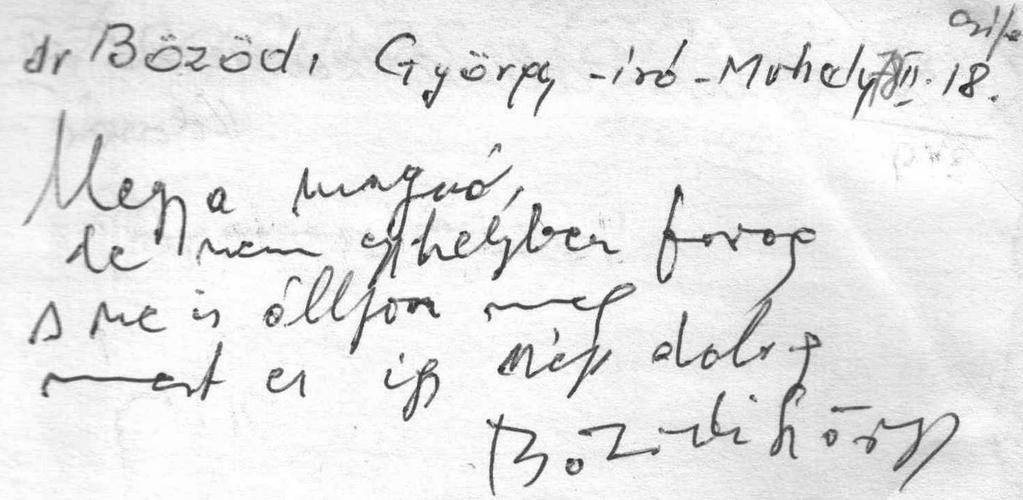 dr Bözödi György - író - Műhely VII. 18.
Megy a magnó,
de nem egyhelyben forog
s ne is álljon meg
mert ez így szép dolog
Bözödi György